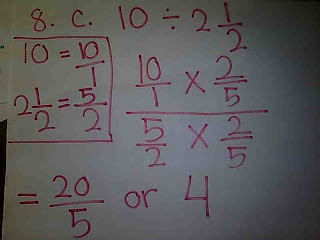 8. c. 10 ÷ 2 1/2
10 = 10/1
2 1/2 = 5/2
10/1 × 2/5
5/2 × 2/5
= 20/5 or 4